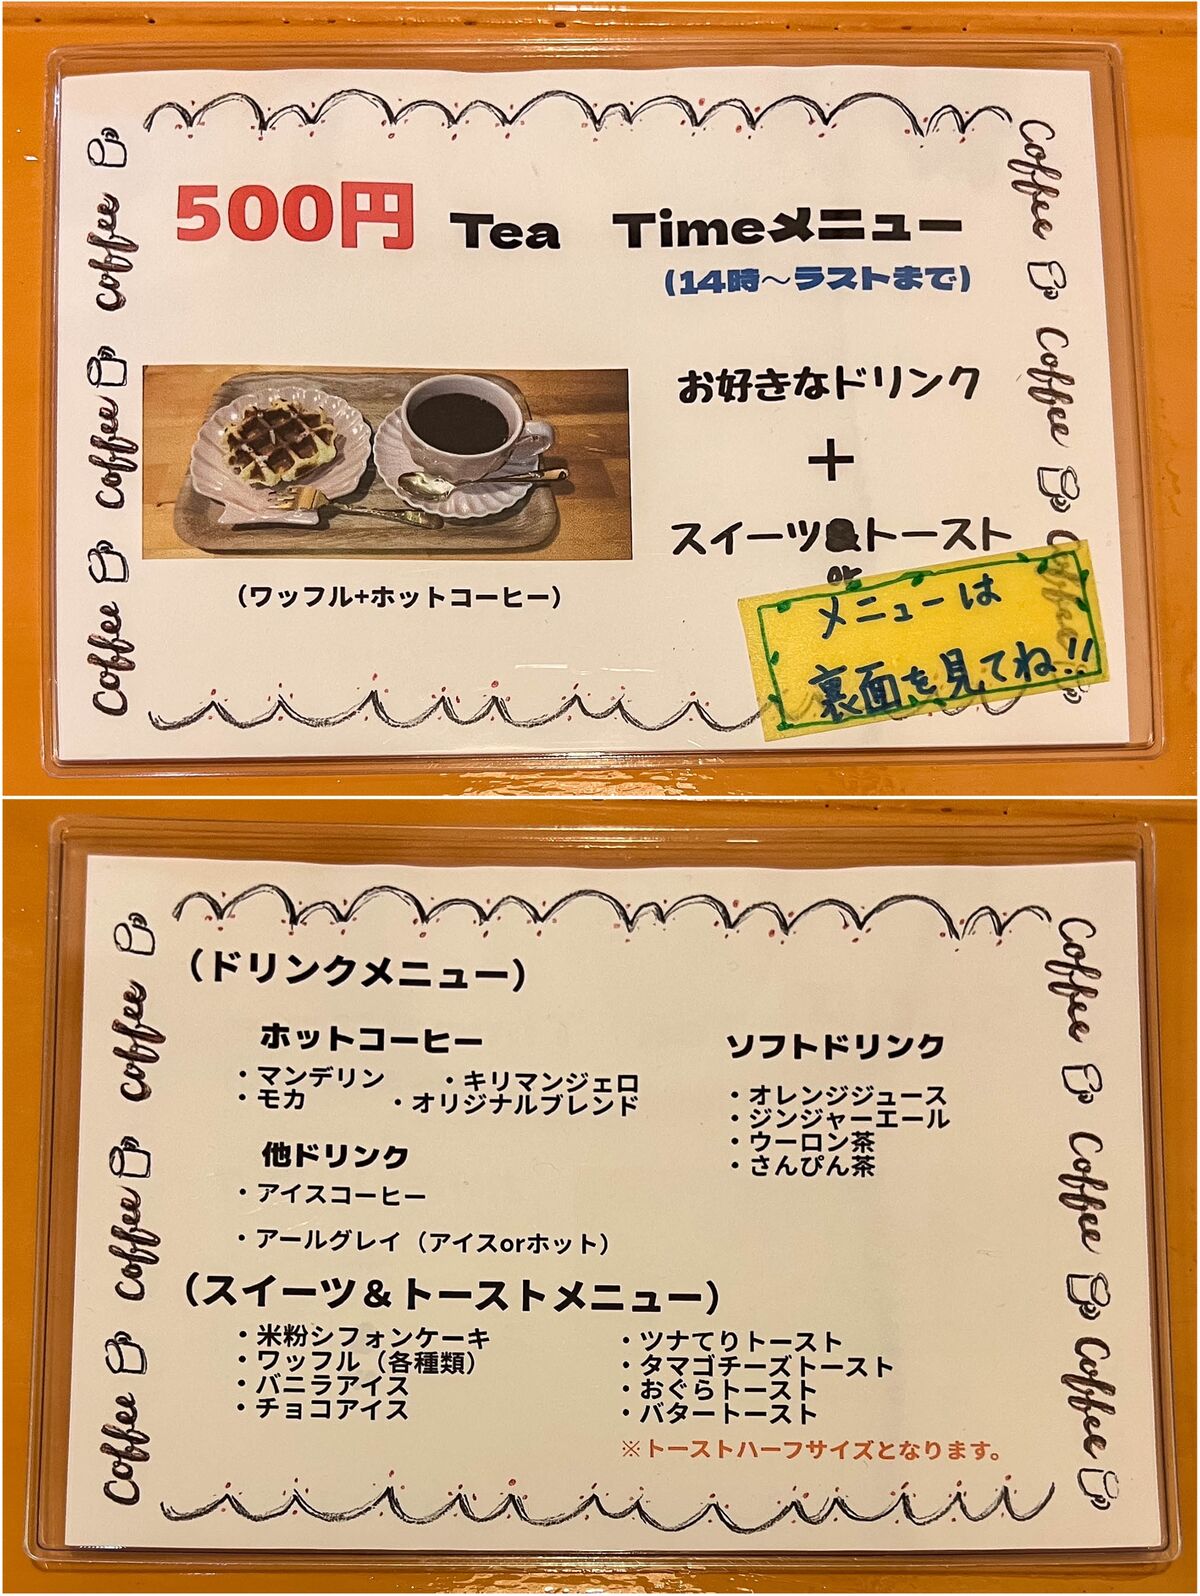 500円 Tea Timeメニュー
(14時～ラストまで)
お好きなドリンク
+
スイーツ トースト
or
(ワッフル+ホットコーヒー)
メニューは
裏面を見てね!!
coffee
coffee
coffee
Coffee
Coffee
Coffee
(ドリンクメニュー)
ホットコーヒー
・マンデリン ・キリマンジェロ
・モカ ・オリジナルブレンド
他ドリンク
・アイスコーヒー
・アールグレイ（アイスorホット）
ソフトドリンク
・オレンジジュース
・ジンジャーエール
・ウーロン茶
・さんぴん茶
(スイーツ＆トーストメニュー)
・米粉シフォンケーキ
・ワッフル（各種類）
・バニラアイス
・チョコアイス
・ツナてりトースト
・タマゴチーズトースト
・おぐらトースト
・バタートースト
※トーストハーフサイズとなります。
coffee
coffee
coffee
Coffee
Coffee
Coffee